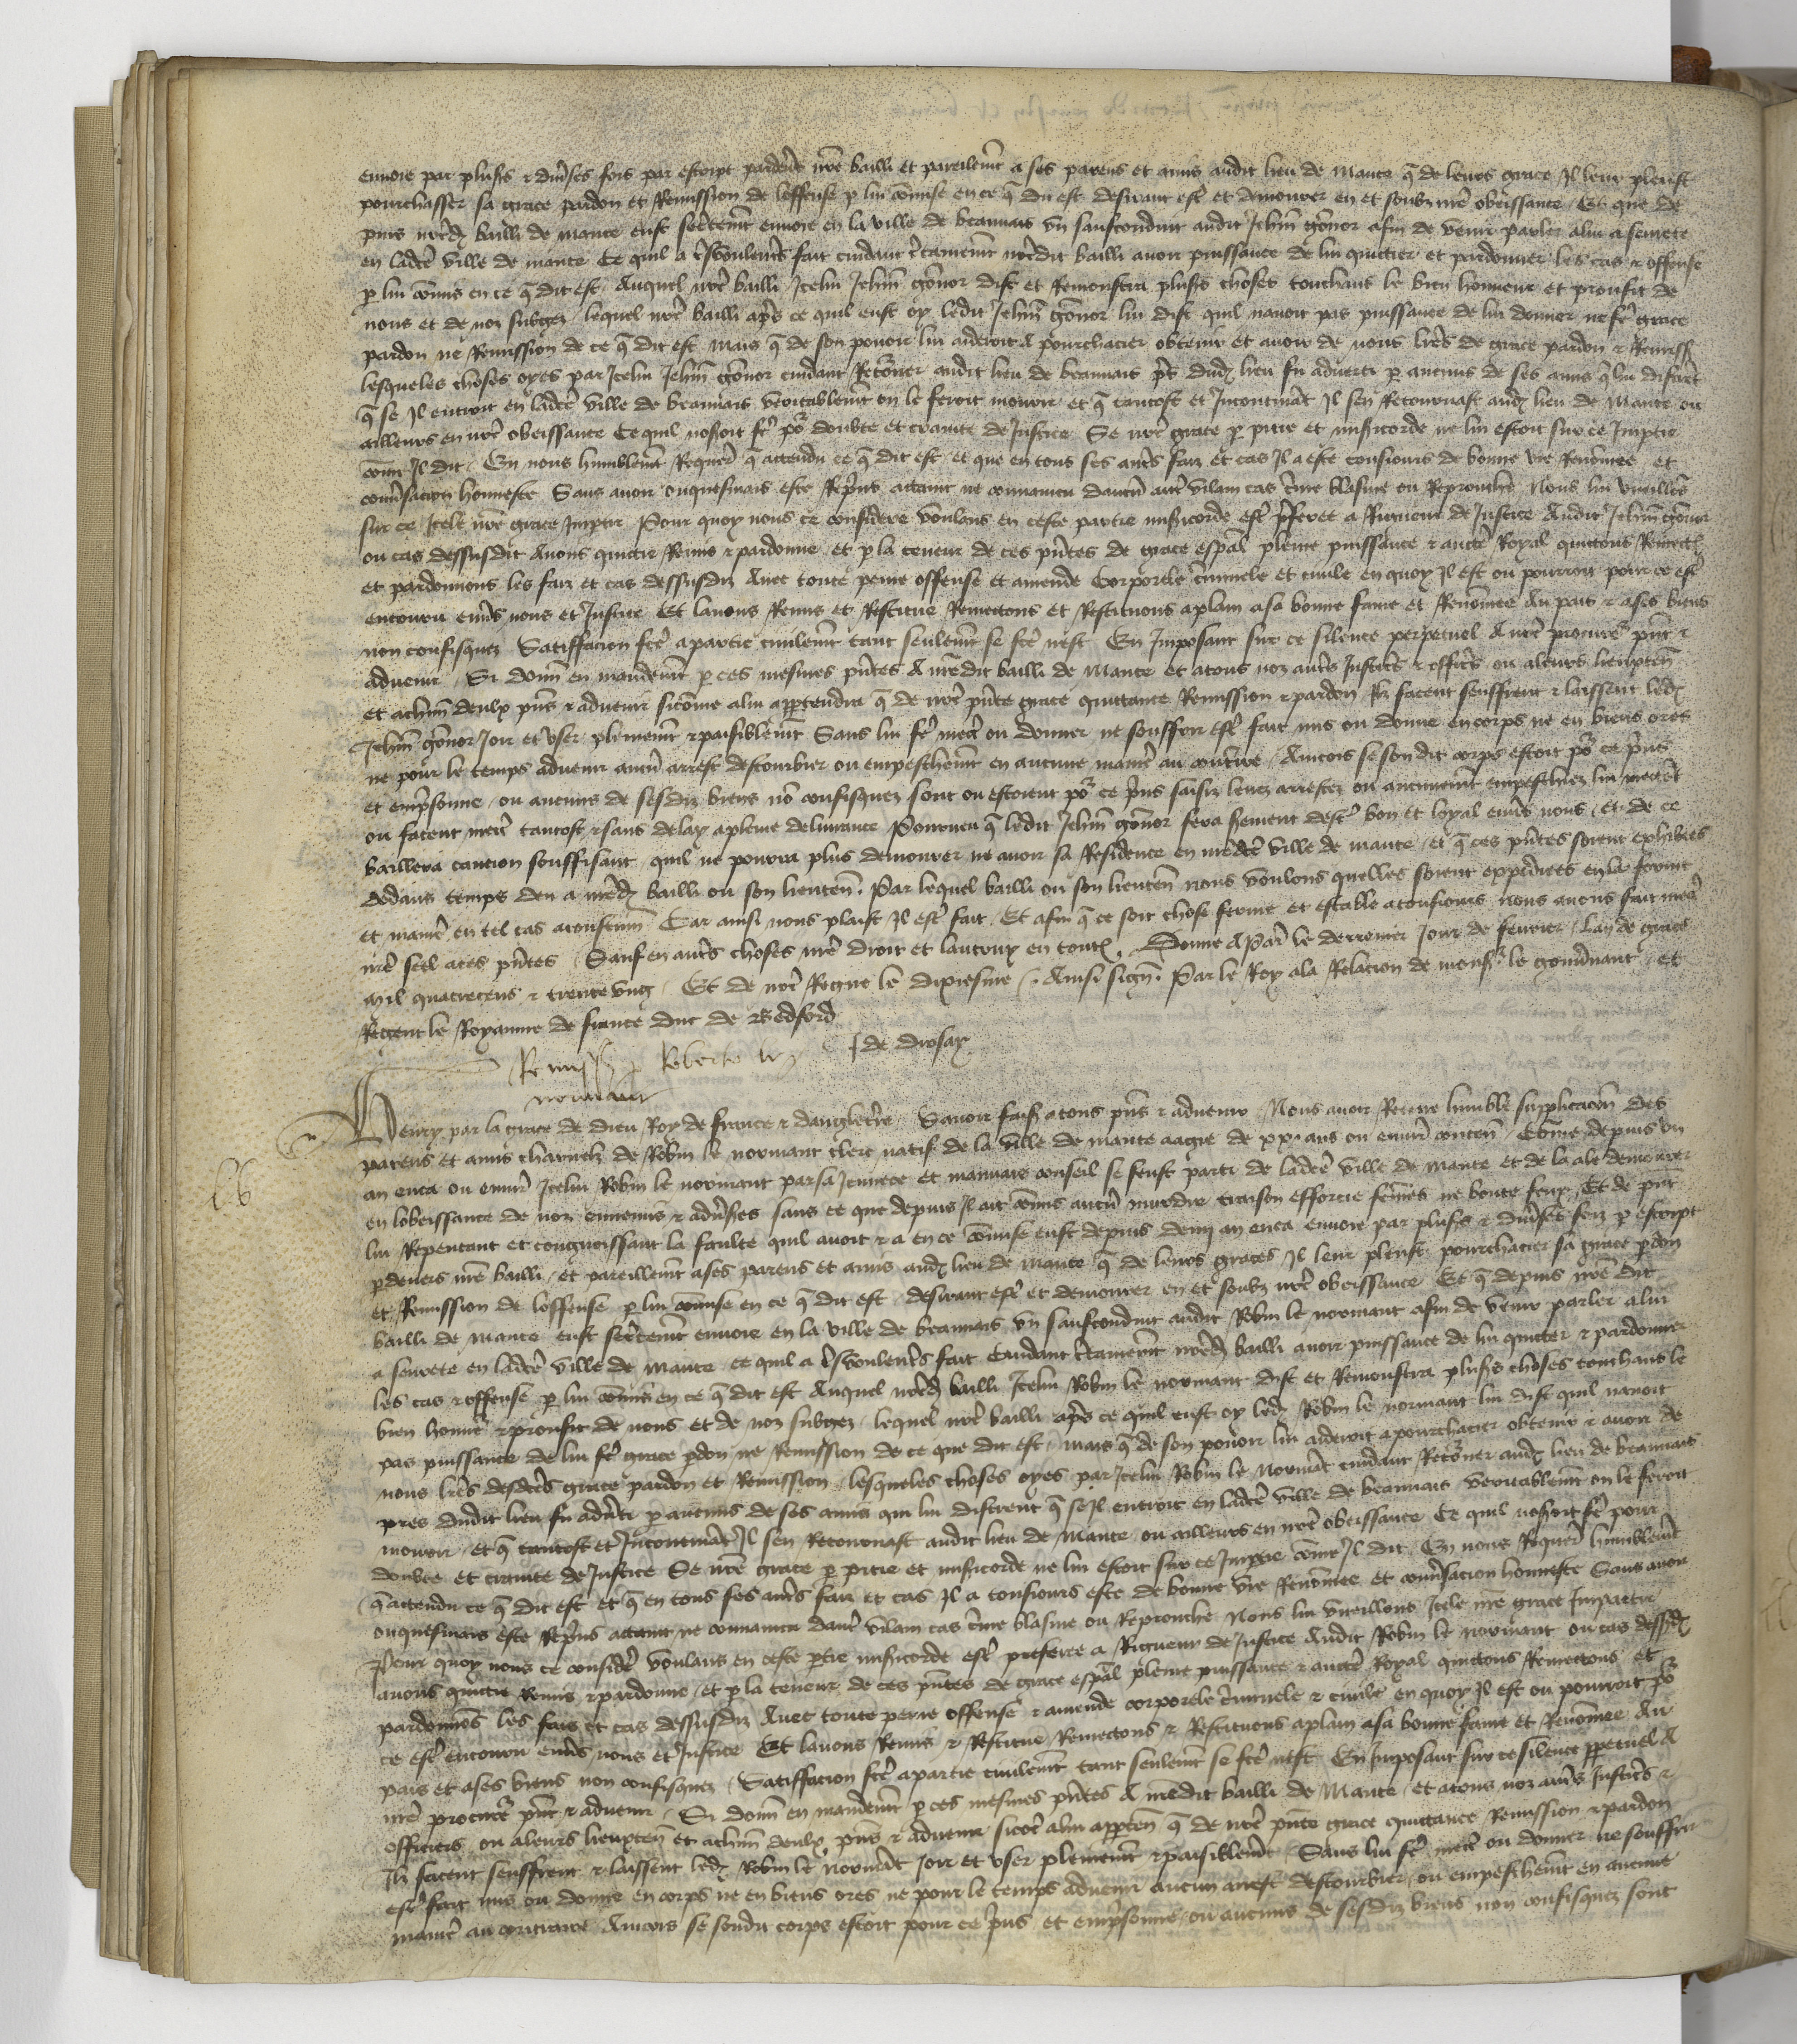 envoie par plusrs & diverses fois par escript pardevs nre bailli et pareilemt a ses parens et amis audit lieu de Mante q de leurs grace Il leur pleust
pourchasser sa grace pardon et Remission de loffense p lui comise en ce q dit est desirant estre et demourer en et soubz nre obeissance Et que de
puis nredit bailli de mante eust secretemt envoie en la ville de beauvais un saufconduit audit Jehan gonor afin de venir parler a lui a seurete
en ladte ville de mante Ce quil a tresvoulentrs fait cuidant certainemt nredit bailli avoir puissance de lui quicter et pardonner les cas & offense
p lui comis en ce q dit est Auquel nre bailli Icelui Jehan gonor dist et Remonstra plusrs choses touchans le bien honneur et proufit de
nous et de noz subgez lequel nre bailli apres ce quil eust oy ledit Jehan gonor lui dist quil navoit pas puissance de lui donner ne fe grace
pardon ne Remission de ce q dit est mais q de son povoir lui aideroit A pourchacier obtenir et avoir de nous lres de grace pardon & Remiss
lesqueles choses oyes par Icelui Jehan gonor cuidant Retourner audit lieu de beauvais pres dud lieu fu adverti p aucuns de ses amis q lui distrent
q se Il entroit en ladte ville de beauvais veritablemt on le feroit mourir et q tantost et Incontinat Il sen Retournast aud lieu de Mante ou
ailleurs en nre obeissance Ce quil nosoit fe pour doubte et crainte de Justice Se nre grace p pitie et misericorde ne lui estoit sur ce Imptie
come Il dit En nous humblemt Requert q attendu ce q dit est et que en tous ses autres faiz et cas Il a este tousiours de bonne vie Renomee et
conversacion honneste Sans avoir onquesmais este Repris attaint ne convaincu daucun autre vilain cas crime blasme ou Reprouche Nous lui vueillons
sur ce Icele nre grace Impartir Pour quoy nous ce considere voulans en ceste partie misericorde estre preferee a Rigueur de Justice Audit Jehan gonor
ou cas dessusdit Avons quicte Remis & pardonne et p la teneur de ces pntes de grace espal pleine puissance & aucte Royal quictons Remectons
et pardonnons les faiz et cas dessusdiz Avec toute peine offense et amende Corporele criminele et civile en quoy Il est ou pourroit pour ce estre
encouru envers nous et Justice Et lavons Remis et Restitue Remectons et Restituons a plain a sa bonne fame et Renomee Au pais & a ses biens
non confisquez Satiffacion fce a partie civilemt tant seulemt se fce nest En Imposant sur ce silence perpetuel A nre procureur pnt &
advenir Si donn en mandemt p ces mesmes pntes A nredit bailli de Mante et a tous noz autres Justiciers & officiers ou a leurs lieuxten
et a chun deulx pns & advenir sicome a lui appartendra q de nre pnte grace quictance Remission & pardon Ilz facent seuffrent & laissent led
Jehan gonor Joir et user plainemt & paisiblemt Sans lui fe mectre ou donner ne souffrir estre fait mis ou donne en corps ne en biens ores
ne pour le temps advenir aucun arrest destourbier ou empeschemt en aucune maniere au contraire Aincois se son dit corps estoit pour ce prins
et emprisonne ou aucuns de sesdiz biens no confisquez sont ou estoient pour ce prins saisiz levez arrestez ou aucunemt empeschiez lui mectent
ou facent mectre tantost & sans delay a pleine delivrance Pourveu q ledit Jehan gonor fera serment destre bon et loyal envers nous et de ce
baillera caucion souffisant quil ne pourra plus demourer ne avoir sa Residence en nredte ville de mante et q ces pntes soient exhibees
dedans temps deu a nred bailli ou son lieuten Par lequel bailli ou son lieuten nous voulons quelles soient expediees en la forme
et maniere en tel cas acoustum Car ainsi nous plaist Il estre fait Et afin q ce soit chose ferme et estable a tousiours Nous avons fait mectre
nre seel a ces pntes Sauf en autres choses nre droit et lautruy en toutes Donne A Paris le derrenier Jour de fevrier Lan de grace
mil quatrecens & trente ung Et de nre Regne le dixiesme Ainsi sign Par le Roy a la Relacion de monsr le gouvernant et
Regent le Royaume de france duc de Bedford
J de drosay
Remiss p Roberto le
normant
Henry par la grace de dieu Roy de france & dangleterre Savoir fais a tous pns & advenir Nous avoir Receue humble supplicacion des
parens et amis charnelz de Robin le normant clerc natif de la ville de mante aagie de xxi ans ou environ conten Come depuis un
an enca ou environ Icelui Robin le normant par sa Jeunece et mauvais conseil se feust parti de ladte ville de mante et de la ale demourer
en lobeissance de noz ennemis & adverses sans ce que depuis Il ait comis aucun murdre traison efforcie femes ne boute feux Et de pnt
lui Repentant et congnoissant la faulte quil avoit & a en ce comise eust depuis demi an enca envoie par plusrs & diverses foiz p escript
pdevers nre bailli et pareillemt a ses parens et amis aud lieu de Mante q de leurs graces Il leur pleust pourchacier sa grace pdon
et Remission de loffense p lui comise en ce q dit est desirant estre et demourer en et soubz nre obeissance Et q depuis nre dit
bailli de mante eust secretemt envoie en la ville de beauvais un saufconduit audit Robin le normant afin de venir parler a lui
a seurete en ladte ville de Mante ce quil a tresvoulentrs fait cuidant certainemt nred bailli avoir puissance de lui quicter & pardonner
les cas & offense p lui comis en ce q dit est Auquel nred bailli Icelui Robin le normant dist et Remonstra plusrs choses touchans le
bien honneur & proufit de nous et de noz subgez lequel nre bailli apres ce quil eust oy led Robin le normant lui dist quil navoit
pas puissance de lui fe grace pdon ne Remission de ce que dit est mais q de son povoir lui aideroit a pourchacier obtenir & avoir de
nous lres desdtes grace pardon et Remission lesqueles choses oyes par Icelui Robin le Normat cuidant Retourner aud lieu de beauvais
pres dudit lieu fu adverti p aucuns de ses amis qui lui distrent q se Il entroit en ladte ville de beauvais veritablemt on le feroit
mourir et q tantost et Incontinat Il sen Retournast audit lieu de Mante ou ailleurs en nre obeissance Ce quil nosoit fe pour
doubte et crainte de Justice Se nre grace p pitie et misericorde ne lui estoit sur ce Imptie come Il dit En nous Requert humblemt
q attendu ce q dit est et q en tous ses autres faiz et cas Il a tousiours este de bonne vie Renomee et conversacion honneste Sans avoir
onquesmais este Repris attaint ne convaincu dautre vilain cas crime blasme ou Reprouche Nous lui vueillons Icele nre grace Impartir
Pour quoy nous ce considere voulans en ceste ptie misericorde estre preferee a Rigueur de Justice Audit Robin le normant ou cas dessusd
avons quicte Remis & pardonne et p la teneur de ces pntes de grace espal pleine puissance & aucte Royal quictons Remectons et
pardonnos les fais et cas dessusdiz Avec toute peine offense & amende corporele criminele & civile en quoy Il est ou pourroit pour
ce estre encouru envers nous et Justice Et lavons Remis & Restitue Remectons & Restituons a plain a sa bonne fame et Renomee Au
pais et a ses biens non confisquez Satiffacion fce a partie civilemt tant seulemt se fce nest En Imposant sur ce silence perpetuel A
nre procureur pnt & advenir Si donn en mandemt p ces mesmes pntes A nredit bailli de Mante et a tous noz autres Justiciers &
officiers ou a leurs lieuxten et a chun deulx pns & advenir sicoe a lui apparten q de nre pnte grace quictance Remission & pardon
Ilz facent seuffrent & laissent led Robin le Normat Joir et user plainemt & paisiblemt Sans lui fe mectre ou donner ne souffrir
estre fait mis ou donne en corps ne en biens ores ne pour le temps advenir aucun arrest destourbier ou empeschemt en aucune
maniere au contraire Aincois se sondit corps estoit pour ce prins et emprisonne ou aucuns de sesdiz biens non confisquez sont